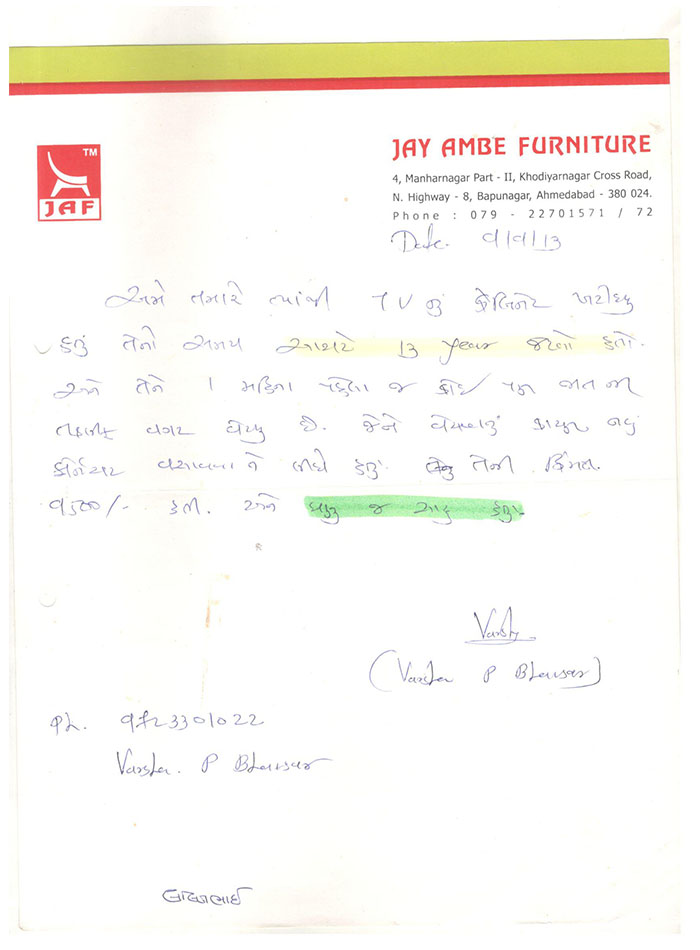 TM
JAF
JAY AMBE FURNITURE
4, Manharnagar Part - II, Khodiyarnagar Cross Road,
N. Highway - 8, Bapunagar, Ahmedabad - 380 024.
Phone : 079 - 22701571 / 72
Date. ૧/૧/13
અમે તમારે ત્યાંથી TV નું કેબિનેટ ખરીદ્યુ
હતું તેનો સમય આશરે 13 year જેવો હતો.
અમે તેને 1 મહિના પહેલા જ કોઈ પણ જાત ના
તકલીફ વગર વેચ્યુ છે. જેને વેચવાનું કારણ નવું
ફર્નિચર વસાવવા ને લીધે હતું. તેની કિંમત
૧૩૦૦/- હતી. અને ઘણુ જ સારુ હતું.
Varsha
(Varsha P Bhavsar)
Ph.
Varsha. P Bhavsar